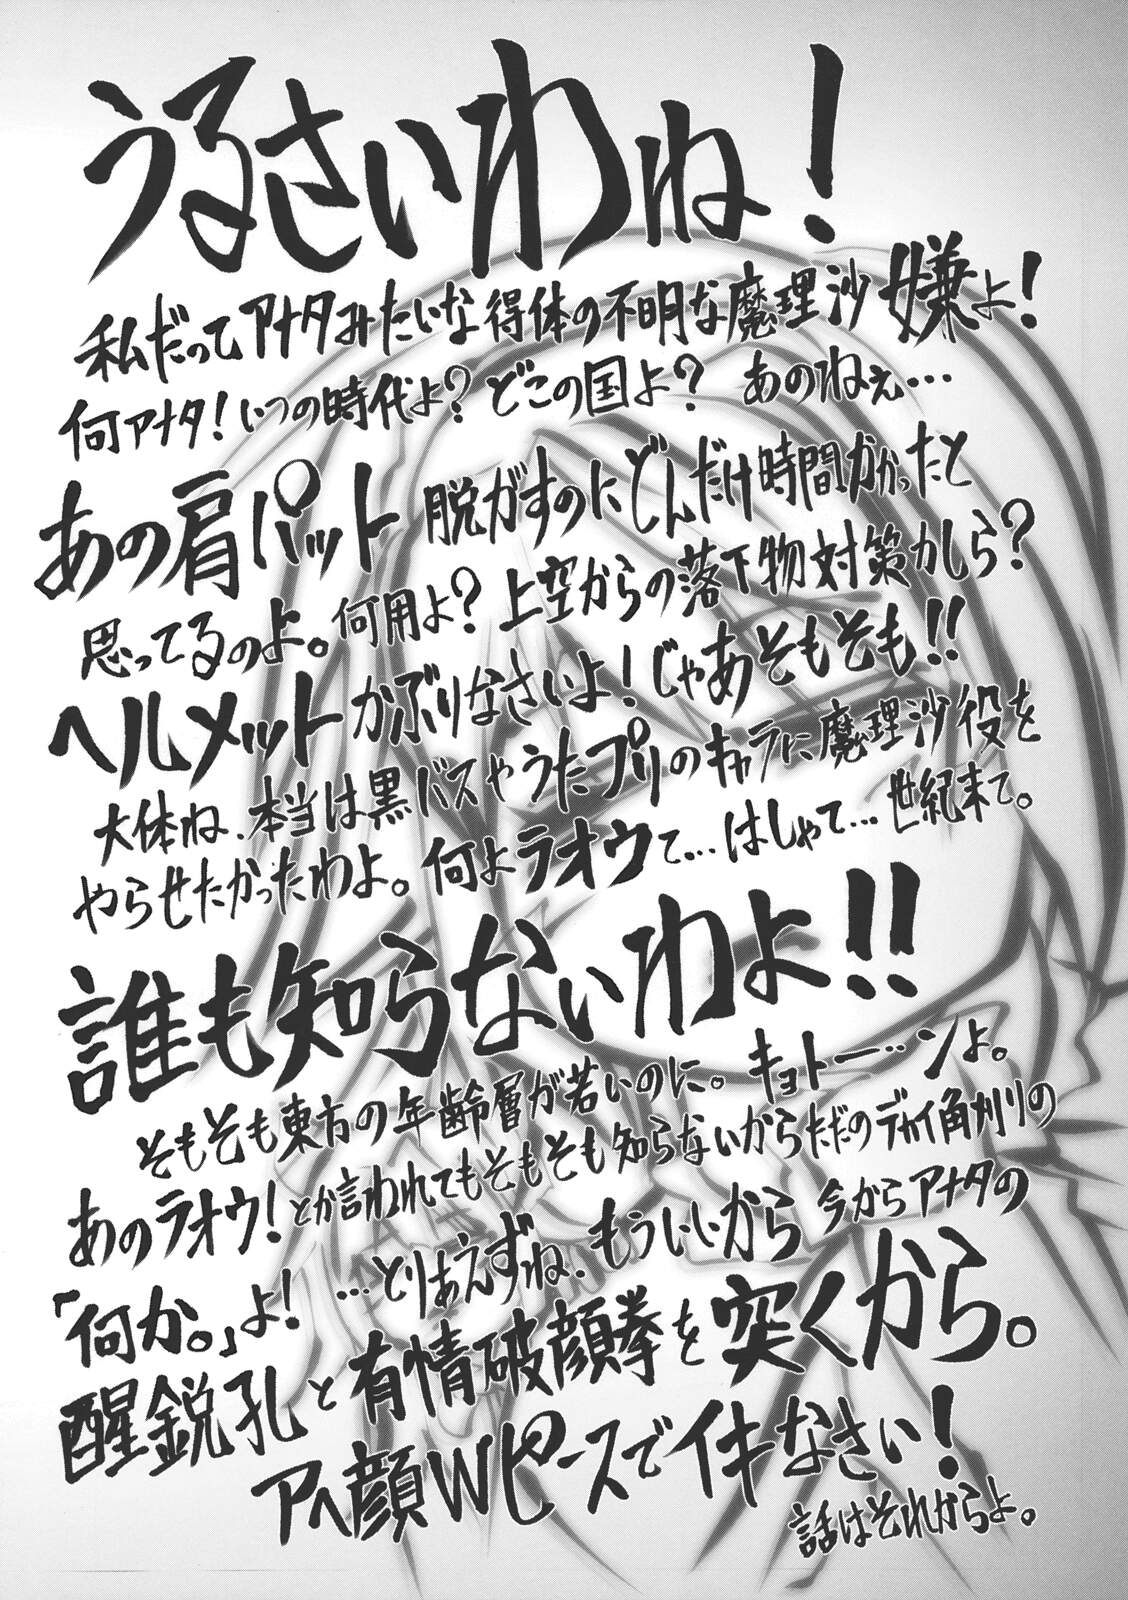 うるさいわね！
私だってアナタみたいな得体の不明な魔理沙嫌よ！
何アナタ！いつの時代よ？どこの国よ？ あのねぇ…
あの肩パット脱がすのにどんだけ時間かかったと
思ってるのよ。何用よ？上空からの落下物対策かしら？
ヘルメットかぶりなさいよ！じゃあそもそも!!
大体ね、本当は黒バスやうたプリのキャラに魔理沙役を
やらせたかったわよ。何よラオウて…はしゃて…世紀末て。
誰も知らないわよ!!
そもそも東方の年齢層が若いのに。キョトーーンよ。
あのラオウ！とか言われてもそもそも知らないからただのデカイ角刈りの
「何か。」よ！ …とりあえずね、もういいから今からアナタの
醒鋭孔と有情破顔拳を突くから。
アヘ顔Wピースでイキなさい！
話はそれからよ。